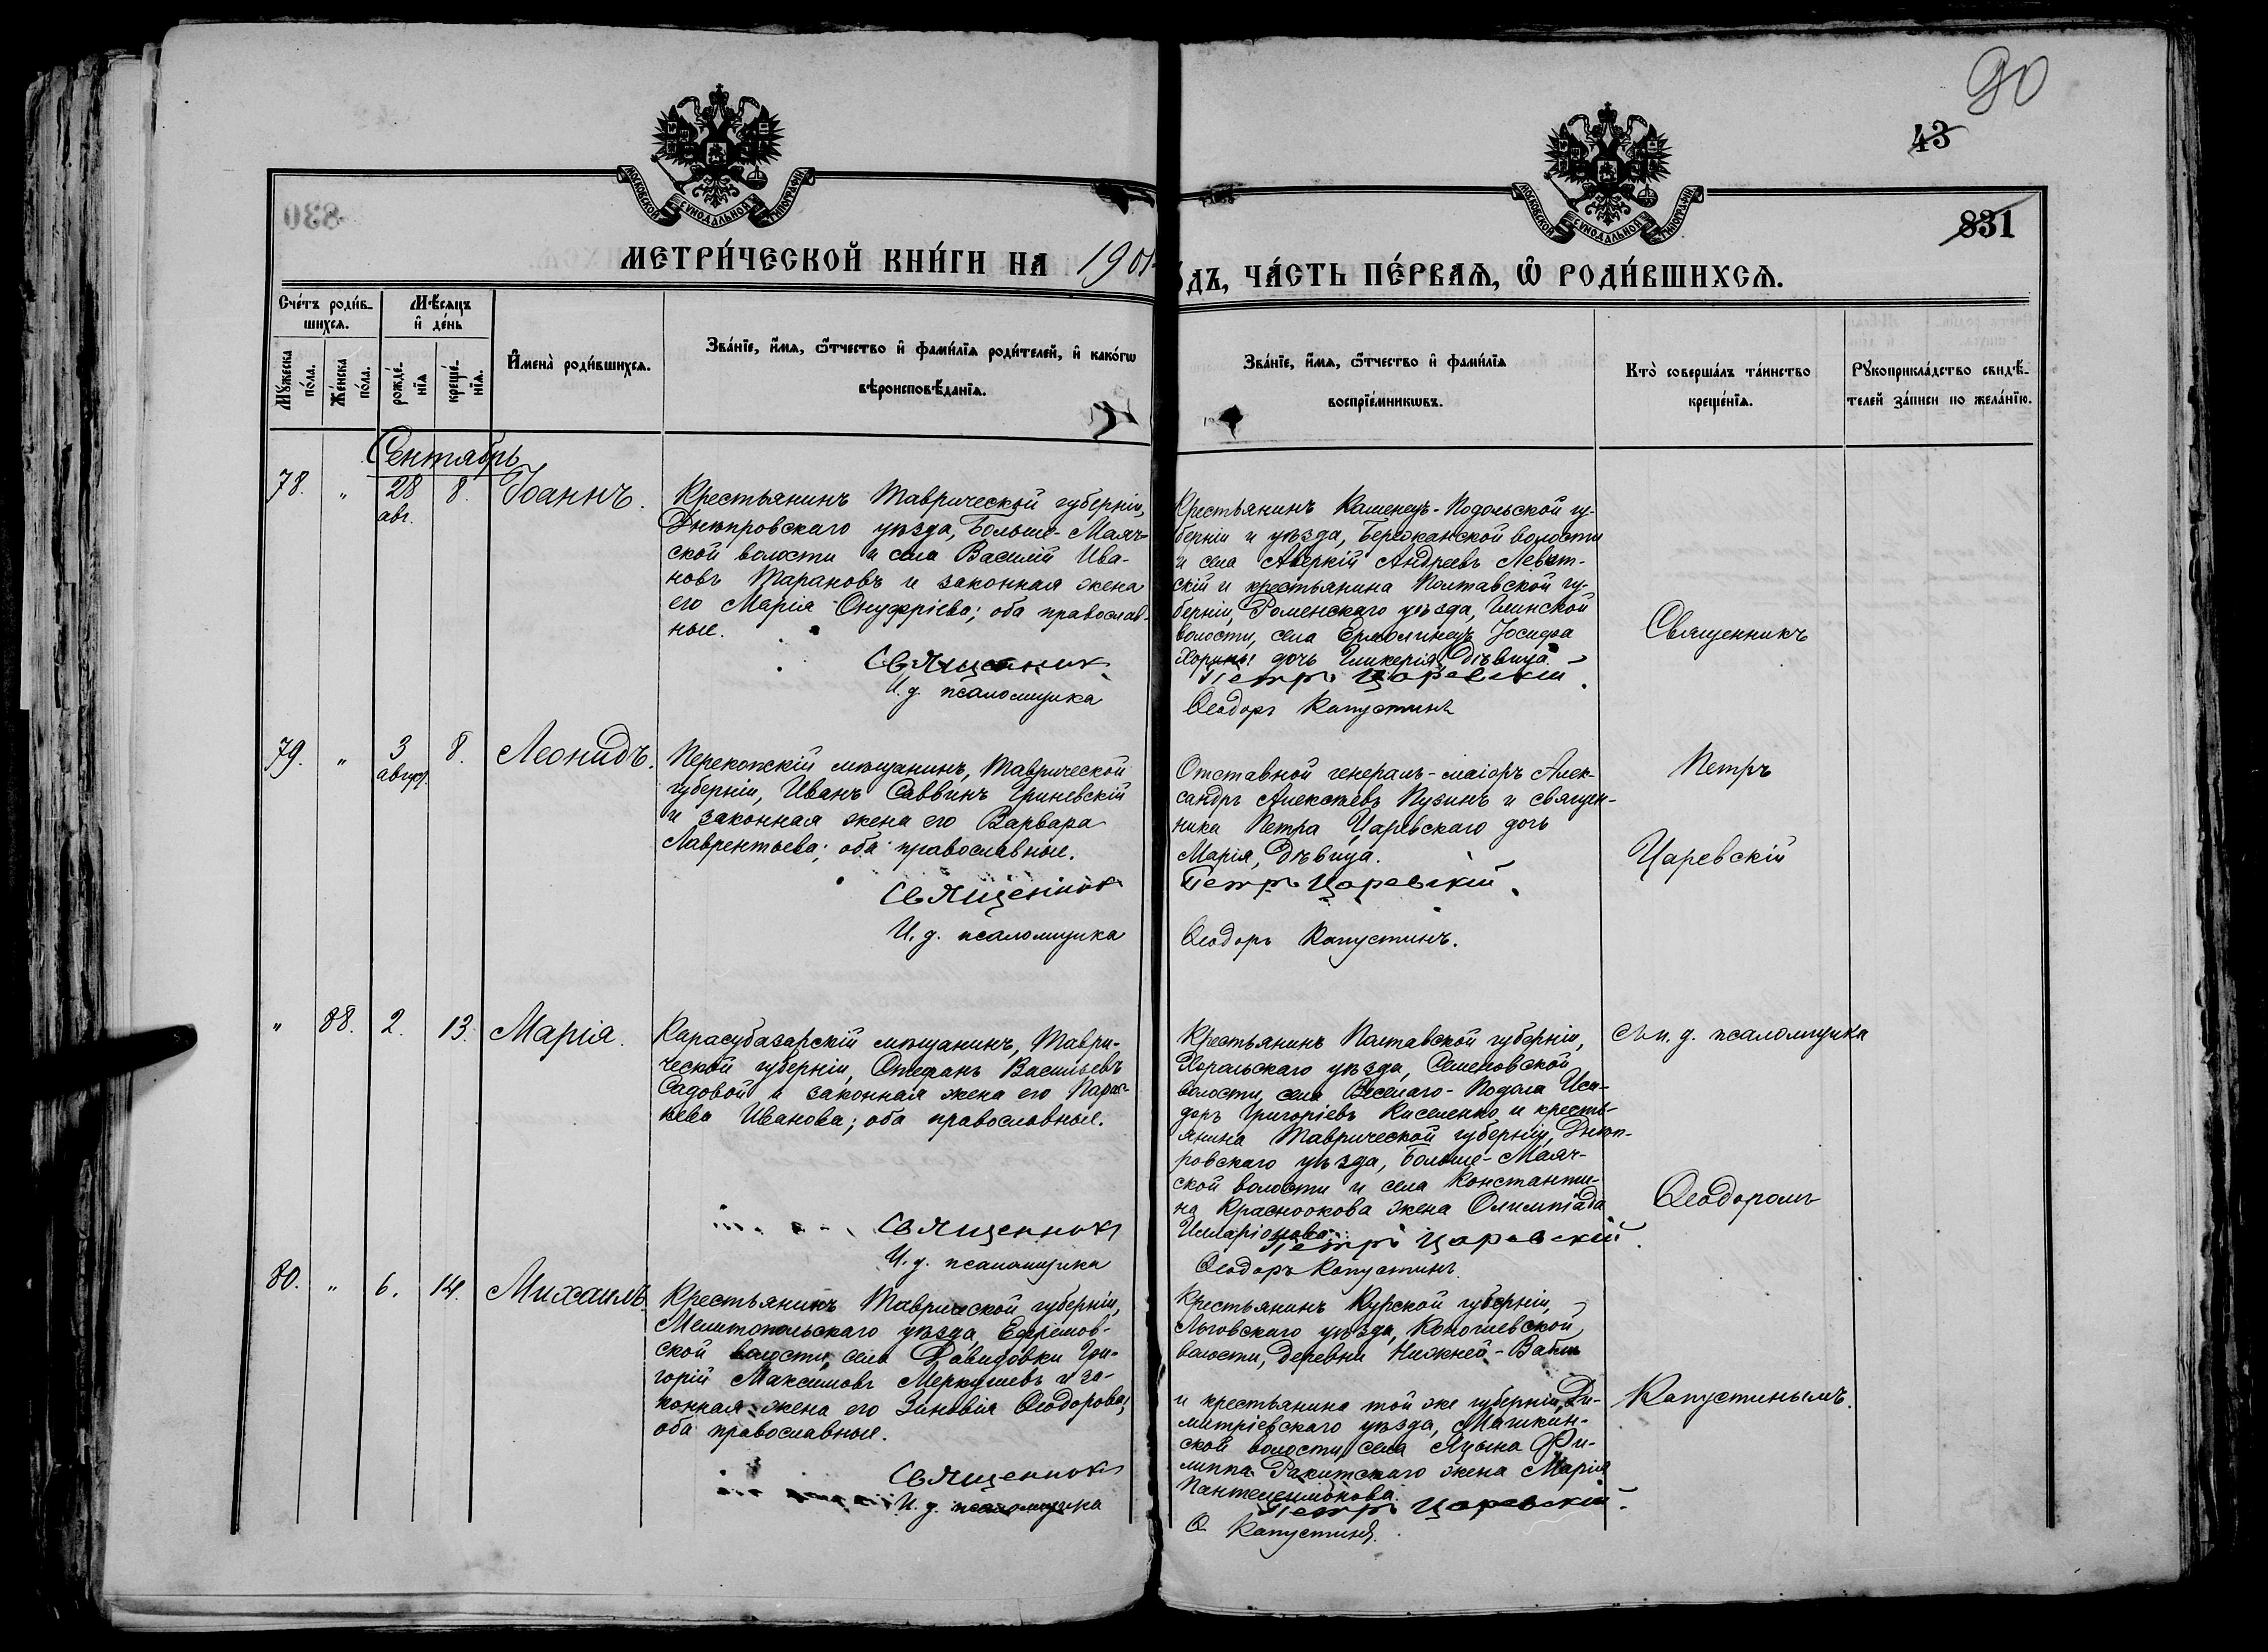 90
43
831
МОСКОВСКОЙ СѴНОДАЛЬНОЙ ТИПОГРАФІИ
МОСКОВСКОЙ СѴНОДАЛЬНОЙ ТИПОГРАФІИ
МЕТРИ́ЧЕСКОЙ КНИ́ГИ НА 1901
ДЪ, ЧА́СТЬ ПЕ́РВАѦ, Ѡ҆ РОДИ́ВШИХСѦ.
Сче́тъ роди́в-
шихсѧ.
Мѣ́сѧцъ
и҆ де́нь
Мꙋ́жеска
по́ла.
Же́нска
по́ла.
рожде́-
нїѧ
креще́-
нїѧ.
И҆мена̀ роди́вшихсѧ.
Зва́нїе, и҆́мѧ, ѻ҆́тчество и҆ фами́лїѧ роди́телей, и҆ како́гѡ
вѣроисповѣ́данїѧ.
Зва́нїе, и҆́мѧ, ѻ҆́тчество и҆ фами́лїѧ
воспрїе́мникѡвъ.
Кто̀ соверша́лъ та́инство
креще́нїѧ.
Рꙋкоприкла́дство свидѣ́-
телей за́писи по жела́нїю.
Сентябрь
78. " 28 авг. 8. Іоаннъ.
Крестьянинъ Таврической губерніи,
Днѣпровскаго уѣзда, Больше-Маяч-
ской волости и села Василій Ива-
новъ Тарановъ и законная жена
его Марія Онуфріева; оба православ-
ные.
Священник
И. д. псаломщика
Крестьянинъ Каменецъ-Подольской гу-
берніи и уѣзда, Бережанской волости
и села Аверкій Андреевъ Левит-
скій и крестьянина Полтавской гу-
берніи, Роменскаго уѣзда, Глинской
волости, села Ермолинецъ Іосифа
Хорины дочь Гликерія, дѣвица.
Петръ Царевскій
Ѳеодоръ Капустинъ
Священникъ
79. " 3 август. 8. Леонидъ.
Перекопскій мѣщанинъ, Таврической
губерніи, Иванъ Саввинъ Гриневскій
и законная жена его Варвара
Лаврентьева; оба православные.
Священник
И. д. псаломщика
Отставной генералъ-маіоръ Алек-
сандръ Алексѣевъ Пузинъ и священ-
ника Петра Царевскаго дочь
Марія, дѣвица.
Петръ Царевскій.
Ѳеодоръ Капустинъ.
Петръ
Царевскій
" 88. 2. 13. Марія.
Карасубазарскій мѣщанинъ, Таври-
ческой губерніи, Стефанъ Васильевъ
Садовой и законная жена его Парас-
кева Иванова; оба православные.
Священник
И. д. псаломщика
Крестьянинъ Полтавской губерніи,
Хорольскаго уѣзда, Семеновской
волости, села Веселаго-Подола Иси-
доръ Григоріевъ Киселенко и кресть-
янина Таврической губерніи, Днѣп-
ровскаго уѣзда, Больше-Маяч-
ской волости и села Константи-
на Красноокова жена Олимпіада
Иларіонова.
Петръ Царевскій.
Ѳеодоръ Капустинъ
съ и. д. псаломщика
Ѳеодоромъ
80. " 6. 14. Михаилъ.
Крестьянинъ Таврической губерніи,
Мелитопольскаго уѣзда, Ефремов-
ской волости, села Давидовки Гри-
горій Максимовъ Меркушевъ и за-
конная жена его Зиновія Ѳеодорова;
оба православные.
Священник
И. д. псаломщика
Крестьянинъ Курской губерніи,
Льговскаго уѣзда,
волости, деревни Нижней-
и крестьянина той же губерніи, Ди-
митріевскаго уѣзда,
ской волости, села Фи-
липпа Ракитскаго жена Марія
Пантелеимонова.
Петръ Царевскій.
Ѳ Капустинъ.
Капустинымъ.